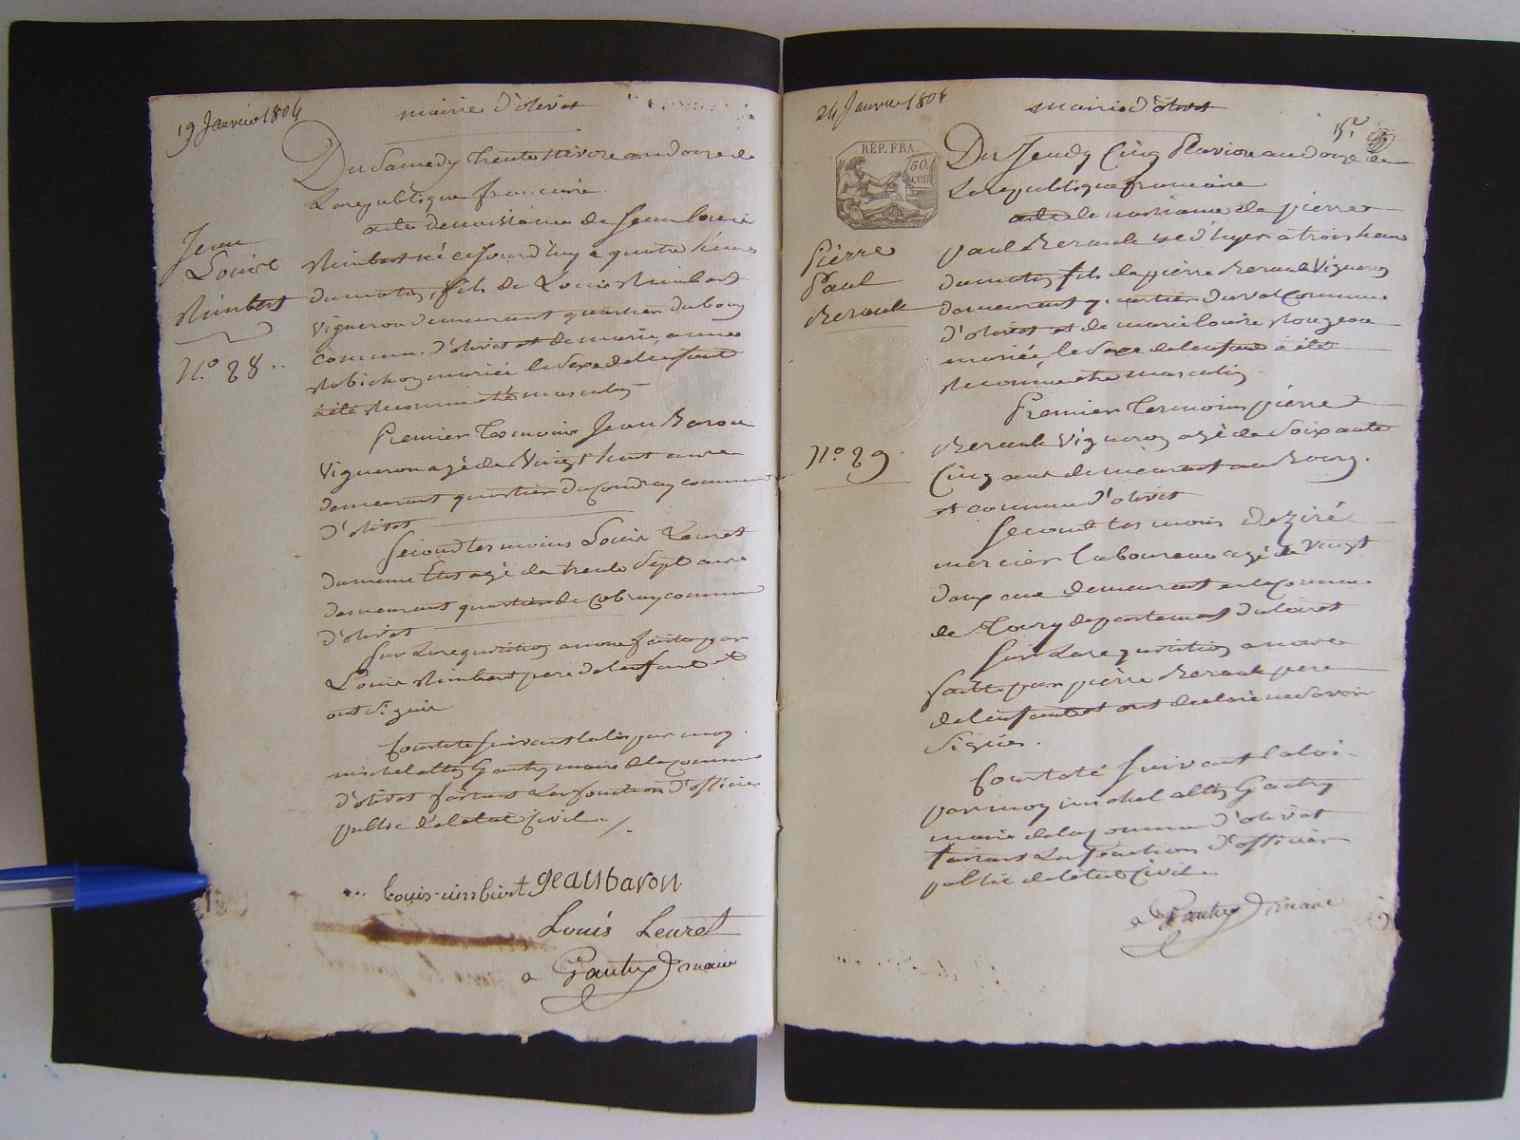 19 Janvier 1804
mairie d'olivet
Du Samedy trente Nivose an douze de
La republique francaise
acte de naissance de Jean Louis
Jean
Louis
Rimbert
N.o 28..
Rimbert né ce jourd'huy a quatre heures
du matin, fils de Louis Rimbert
Vigneron demeurant quartier du bourg
commune d'olivet et de marie anne
Robichon mariée le sexe de l'enfant
à été reconnu être masculin
Premier tesmoins Jean Baron
Vigneron agé de Vingt huit ans
demeurant quartier du coudray commune
d'olivet
Second tesmoins Louis Leuret
du meme Etat agé de trente Sept ans
demeurant quartier de commune
d'olivet
Sur La requisition a nous faite par
Louis Rimbert pere de l'enfant et
ont Signé
Constaté suivant la loi par moy
michel Gautry maire de la commune
d'olivet faisant Les fonction d'officier
public de l'etat Civil.
Louis rimbert geanbaron
Louis Leuret
a Gautry maire
24 Janvier 1804
mairie d'olivet
15.e
REP. FRA.
50
cent
Du Jeudy Cinq Pluviose an douze de
La republique francaise
acte de naissance de pierre
Pièrre
Paul
Berault
N.o 29.
paul Berault né d'hyer à trois heures
du matin fils de pièrre Berault Vigneron
demeurant quartier du val commune
d'olivet et de marie louise Rouzeau
mariée, le Sexe de l'enfant à été
reconnu etre masculin
Premier tesmoins pièrre
Berault Vigneron agé de Soixante
Cinq ans demeurant au Bourg
et commune d'olivet
Second tesmoins Deziré
mercier laboureur agé de Vingt
deux ans demeurant en la commune
de departement du loiret
Sur La requisition a nous
faitte par pièrre Berault pere
de l'enfant et ont declaré ne Savoir
Signer.
Constaté Suivant la loi
par moy michel Gautry
maire de la commune d'olivet
faisant Les fonctions d'officier
public de l'etat Civil.
a Gautry maire